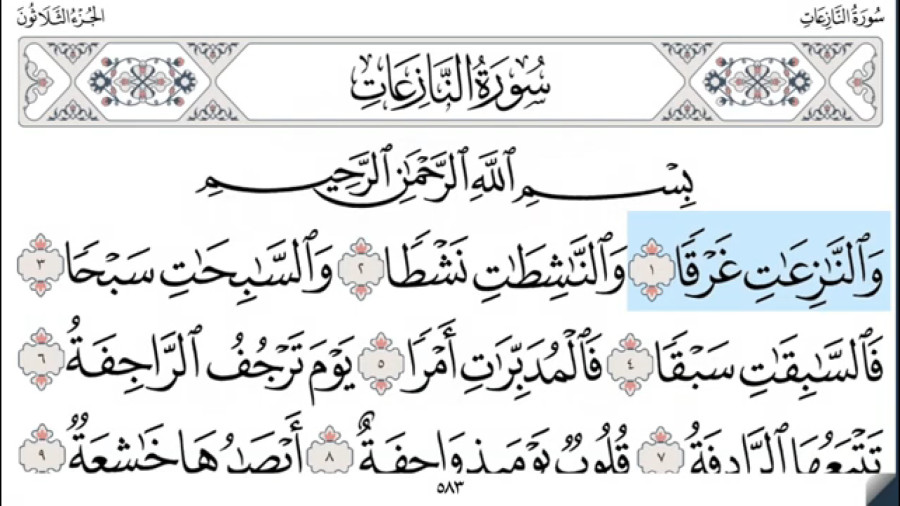 سُورَةُ النَّازِعَاتِ
الجُزْءُ الثَّلَاثُونَ
سُورَةُ النَّازِعَاتِ
بِسْمِ ٱللَّهِ ٱلرَّحْمَٰنِ ٱلرَّحِيمِ
وَٱلنَّٰزِعَٰتِ غَرْقٗا ١ وَٱلنَّٰشِطَٰتِ نَشْطٗا ٢ وَٱلسَّٰبِحَٰتِ سَبْحٗا ٣
فَٱلسَّٰبِقَٰتِ سَبْقٗا ٤ فَٱلْمُدَبِّرَٰتِ أَمْرٗا ٥ يَوْمَ تَرْجُفُ ٱلرَّاجِفَةُ ٦
تَتْبَعُهَا ٱلرَّادِفَةُ ٧ قُلُوبٞ يَوْمَئِذٖ وَاجِفَةٌ ٨ أَبْصَٰرُهَا خَٰشِعَةٞ ٩
٥٨٣